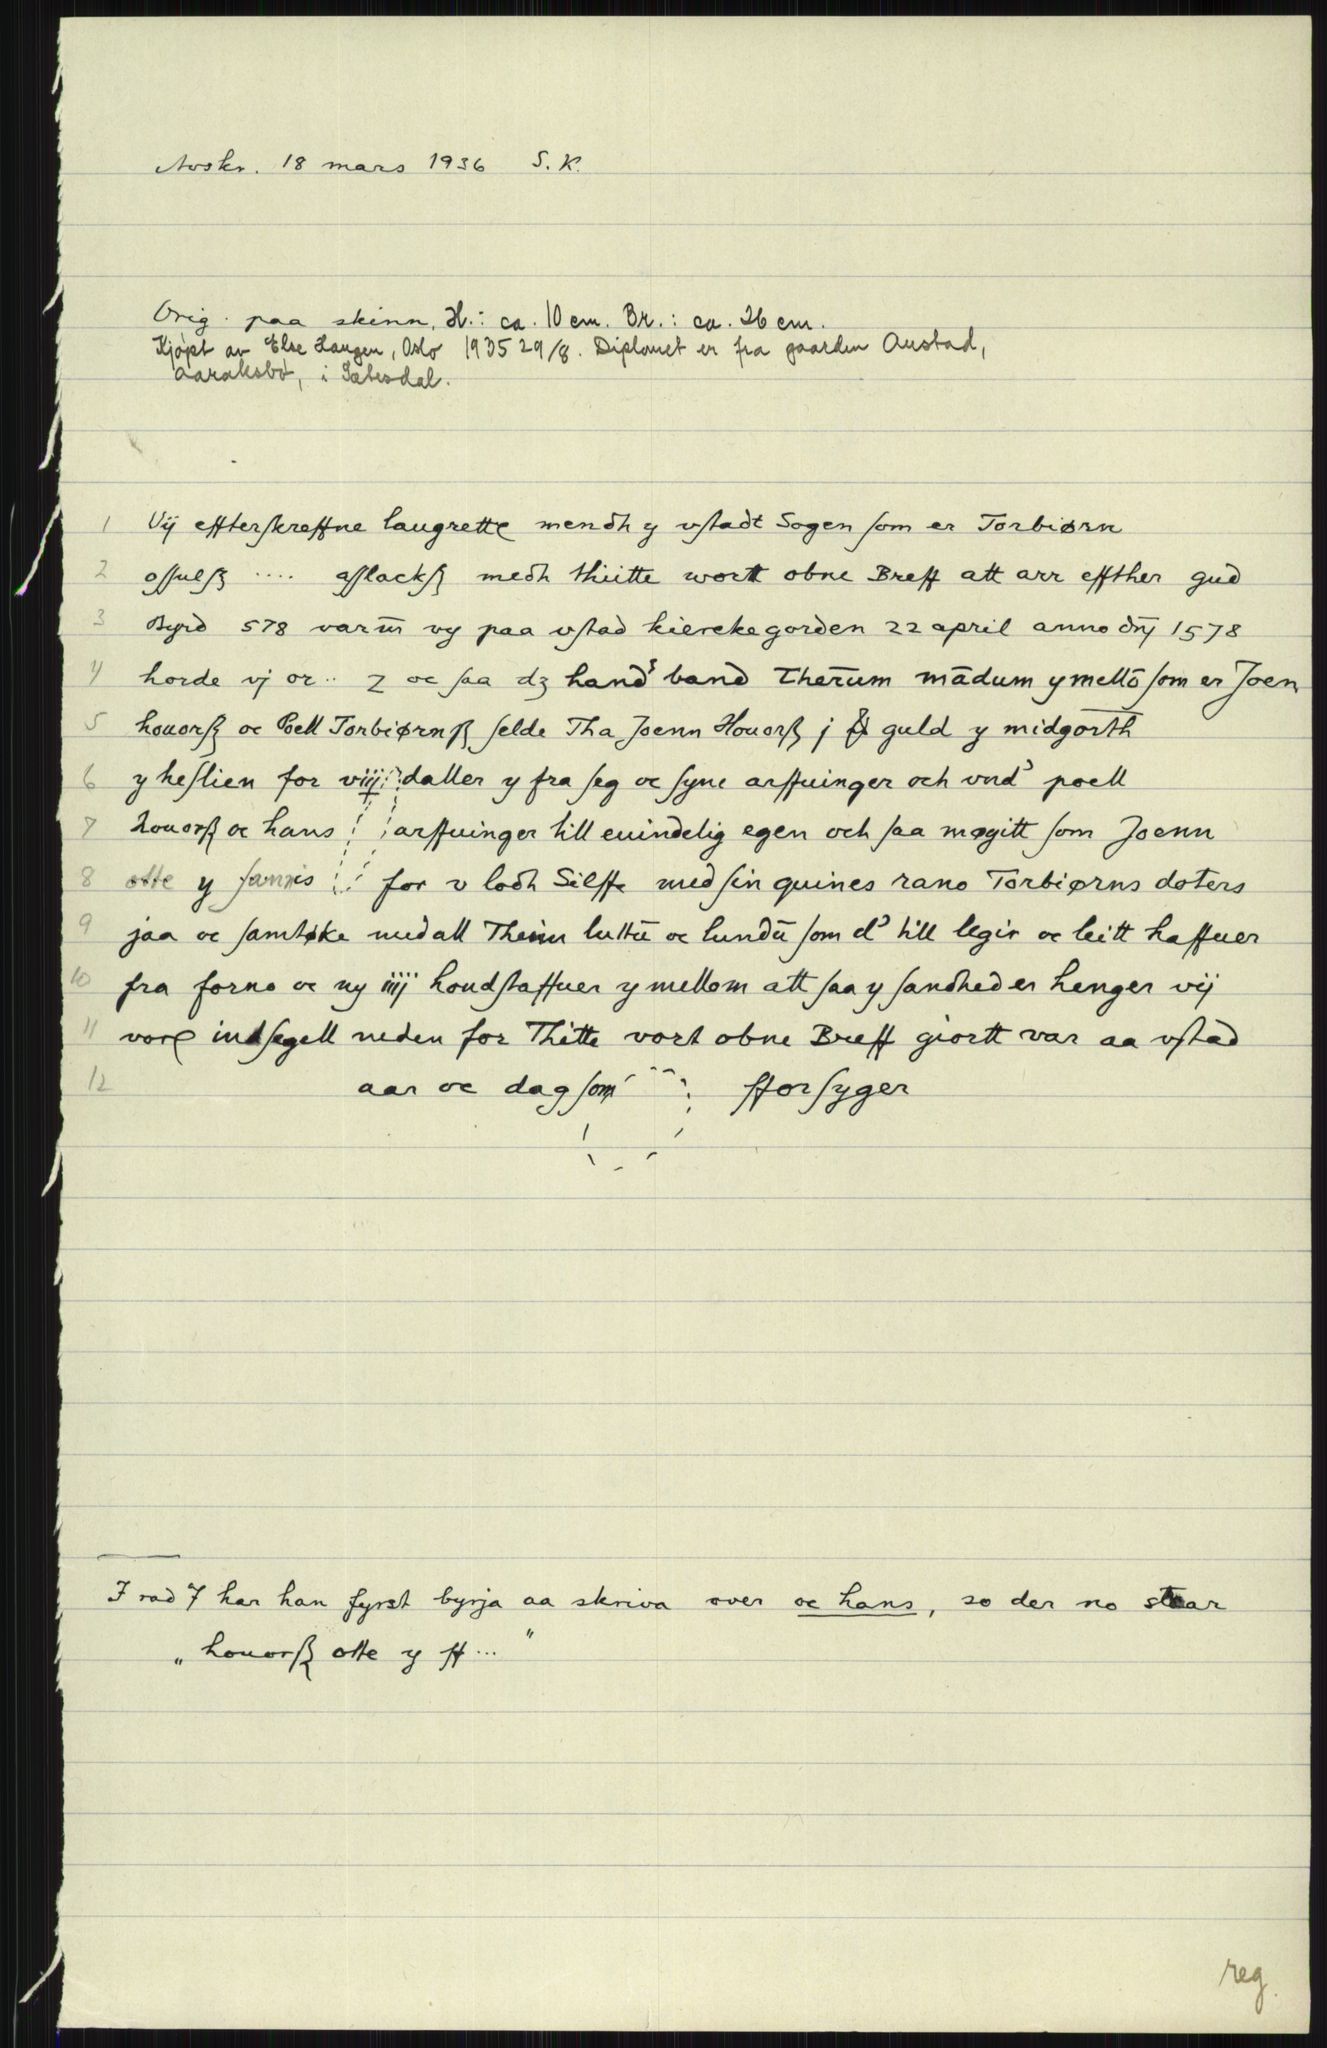 Avskr. 18 mars 1936 S. K.
Orig. paa skinn, H.: ca. 10 cm. Br.: ca. 26 cm.
Kjøpt av Else Haugen, Oslo 1935 29/8. Diplomet er fra gaarden Austad,
Aaraksbø, i Sætesdal.
1 Vij effterskreffne laugrette mendh y vstadt Sogen som er Torbiørn
2 ossulß .... asslackß medh thiitte wortt obne Breff att arr effther gud
3 Byrd 578 varm̄ vy paa vstad kierekegorden 22 april anno dnj 1578
4 horde vj or .. z oc saa dʒ hand band Therūm mādum y mellō som er Joen
5 houorß oc Poell Torbiørnß selde Tha Joenn Houorß j guld y midgorth
6 y heslien for viij daller y fra seg oc syne arffuinger och vnd poell
7 houorß oc hans arffuinger till euindelig egen och saa møgitt som Joenn
8 otte y samis for v lodh Silffe med sin quines rano Torbiørns doters
9 jaa oc samtøke med all Theim luttū oc lundū som d till legir oc leitt haffuer
10 fra forno oc ny iiij houdstaffuer y mellom att saa y sandhed er henger vij
11 vore indsegell neden for Thitte vort obne Breff giortt var aa vstad
12 aar oc dag som fforsyger
I rad 7 har han fyrst byrja aa skriva over oc hans, so der no staar
„houorß otte y ff..."
reg.